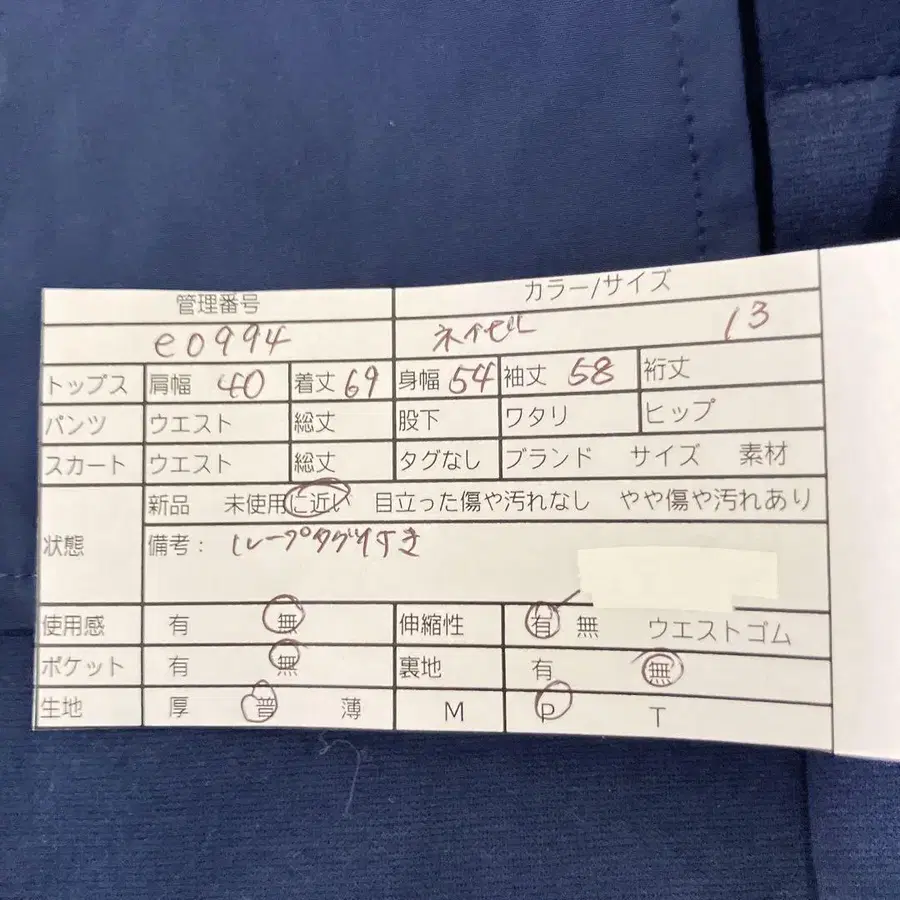 管理番号 カラー/サイズ
e0994 ネイビー 13
トップス 肩幅 40 着丈 69 身幅 54 袖丈 58 裄丈
パンツ ウエスト 総丈 股下 ワタリ ヒップ
スカート ウエスト 総丈 タグなし ブランド サイズ 素材
状態 新品 未使用に近い 目立った傷や汚れなし やや傷や汚れあり
備考: ループタグ付き
使用感 有 無 伸縮性 有 無 ウエストゴム
ポケット 有 無 裏地 有 無
生地 厚 普 薄 M P T